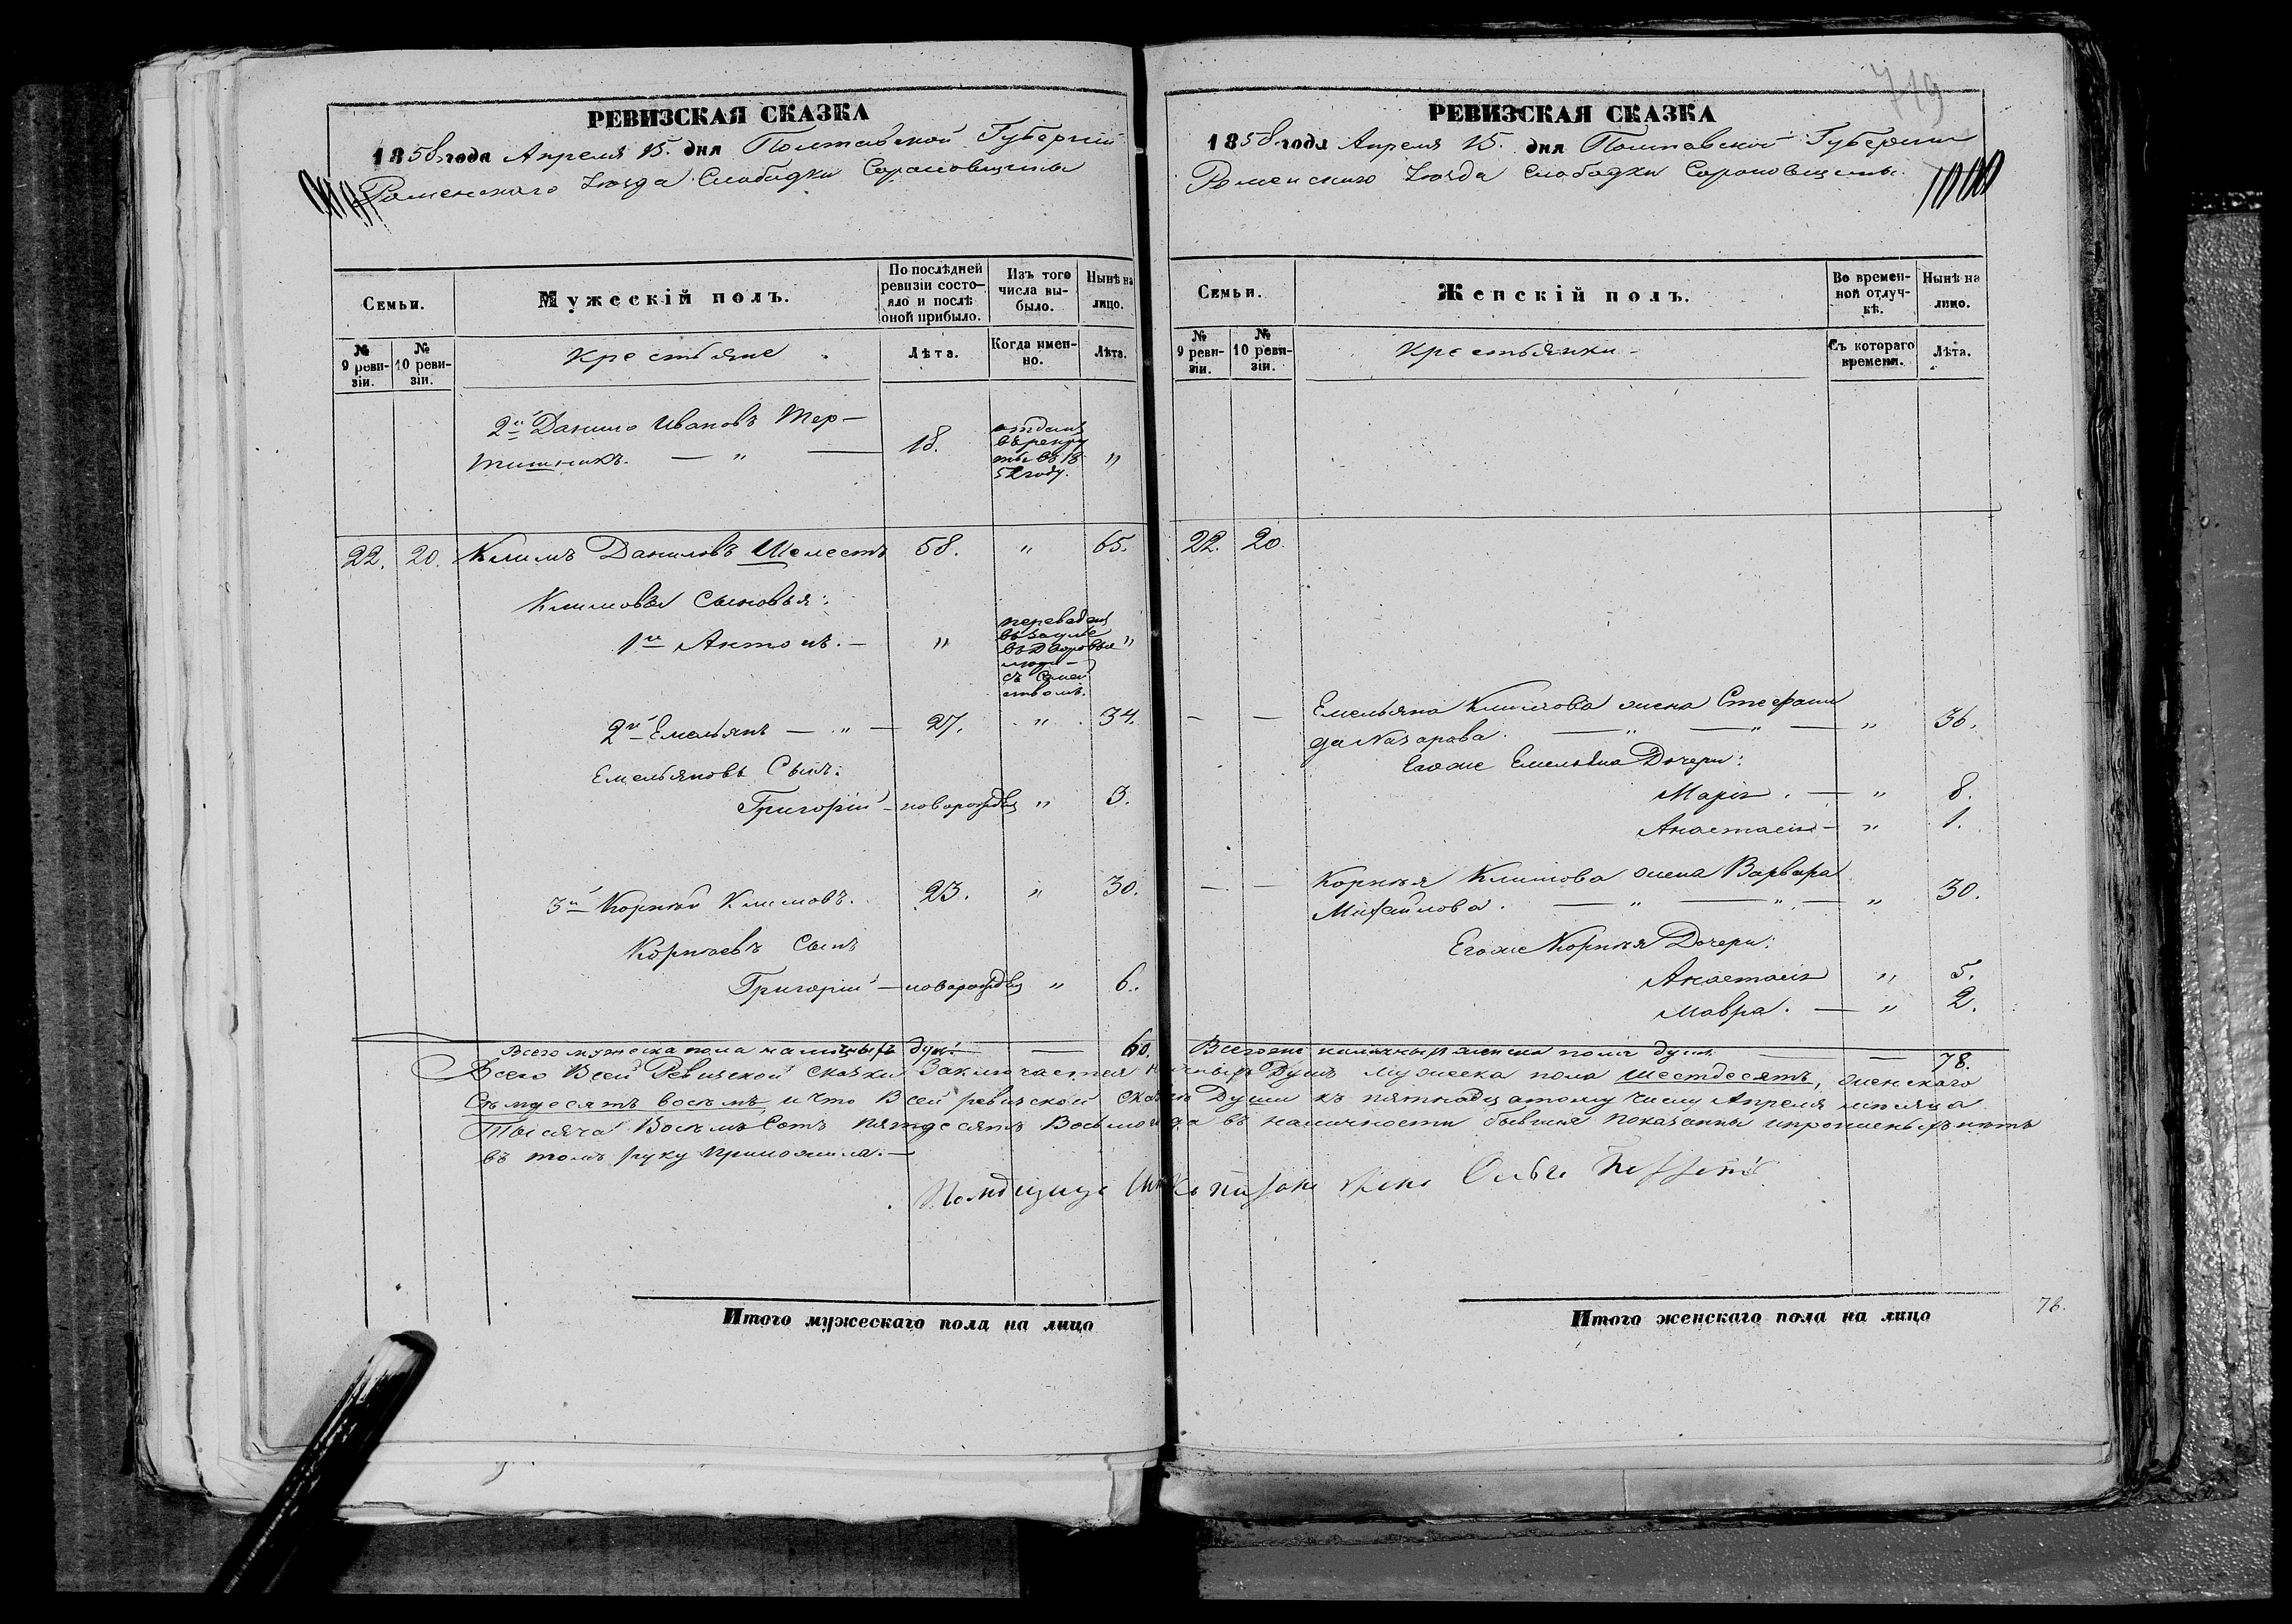 РЕВИЗСКАЯ СКАЗКА
1858 года Апреля 15. дня Полтавской Губернiи
Роменскаго Уезда Слободки Сорочовщины
Семьи.
Мужескій полъ.
По послѣдней ревизіи состо-
яло и послѣ
оной прибыло.
Изъ того
числа вы-
было.
Нынѣ на
лицо.
№
9 реви-
зіи.
№
10 реви-
зіи.
Крестьяне
Лѣта.
Когда имен-
но.
Лѣта.
2й Данило Ивановъ Тер-
тишникъ. — " —
18.
отданъ
въ рекру
ты въ 18
52 году.
"
22. 20. Климъ Даниловъ Шелестъ 58. " 65.
Климовы Сыновья:
1й Антонъ. — "
переведенъ
въ дворовые "
люди
съ Семей
ствомъ.
2й Емельянъ — " — 27. " 34.
Емельяновъ Сынъ:
Григорій — новорожден " 3.
3й Корнѣй Климовъ. 23. " 30.
Корнѣевъ Сынъ
Григорій — новорожден " 6.
Всего мужеска пола наличныхъ душъ — — 60.
719
РЕВИЗСКАЯ СКАЗКА
1858 года Апреля 15. дня Полтавской Губернiи
Роменскаго Уезда Слободки Сорочовщины.
Семьи.
Женскій полъ.
Во времен-
ной отлуч-
кѣ.
Нынѣ на
лицо.
№
9 реви-
зіи.
№
10 реви-
зіи.
Крестьянки
Съ котораго
времени.
Лѣта.
22. 20.
Емельяна Климова жена Стефани
да Назарова. — " — " — " 36.
Его же Емельяна Дочери:
Марія. — " 8.
Анастасія — " 1.
Корнѣя Климова жена Варвара
Михайлова. — " — " — " 30.
Его же Корнѣя Дочери:
Анастасія " 5.
Мавра. — " 2.
Всего наличныхъ женска пола душъ — — 78.
Всего Всей Ревизской сказки Заключается наличныхъ Душъ мужеска пола Шестдесятъ, женскаго
Семдесятъ восемъ и что Всей ревизской сказки Души къ пятнадцатому числу Апреля месяца
Тысяча Восемъ Сотъ пятдесятъ Восьмого года въ наличности бывшие показанны и прописныхъ нетъ
въ томъ руку приложила. —
Помещица жена Ольга
Итого мужескаго пола на лицо
Итого женскаго пола на лицо
78.